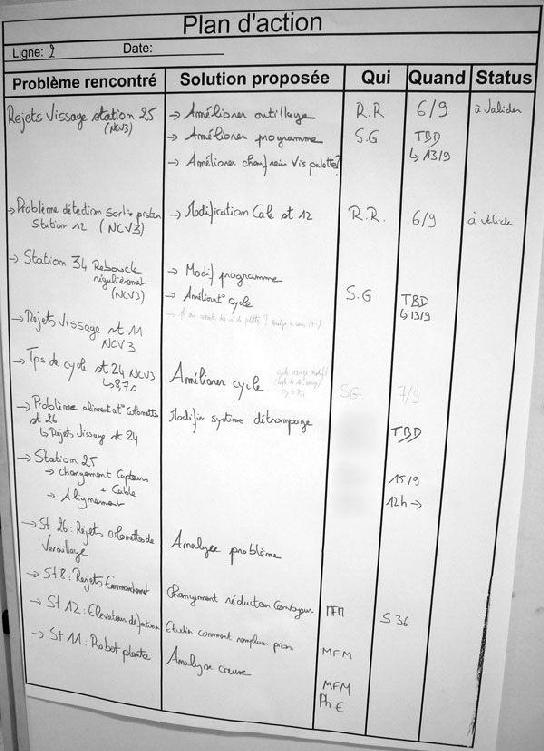 Plan d'action
Ligne: 2 Date:
Problème rencontré Solution proposée Qui Quand Status
Rejets Vissage station 25 → Améliorer outillage R.R 6/9 à valider
(NCV3) → Améliorer programme S.G TBD
→ Améliorer vis palette? ↳ 13/9
→ Problème détection
Station 12 (NCV3) → Modification Cale st 12 R.R. 6/9 à
→ Station 34 Reboucle → Modif programme
(NCV3) → Améliorat° cycle S.G TBD
↳ 13/9
→ Rejets Vissage st 11
NCV3
→ Tps de cycle st 24 NCV3 Améliorer cycle SG 7/9
↳ 8,7s
→ Problème alimentat° Modifier système détrompage
st 26 TBD
↳ Rejets Vissage st 24
→ Station 25 15/9
→ Changement Capteur
+ Cable 12h →
→ Alignement
→ St 26: Rejets Analyse problème
Verouillage
→ St 8: Rejets Changement réducteur Convoyeur MFM S 36
→ St 12: Elevateur Etudier comment remplacer MFM
→ St 11: Robot plante Analyse cause MFM
Ph E